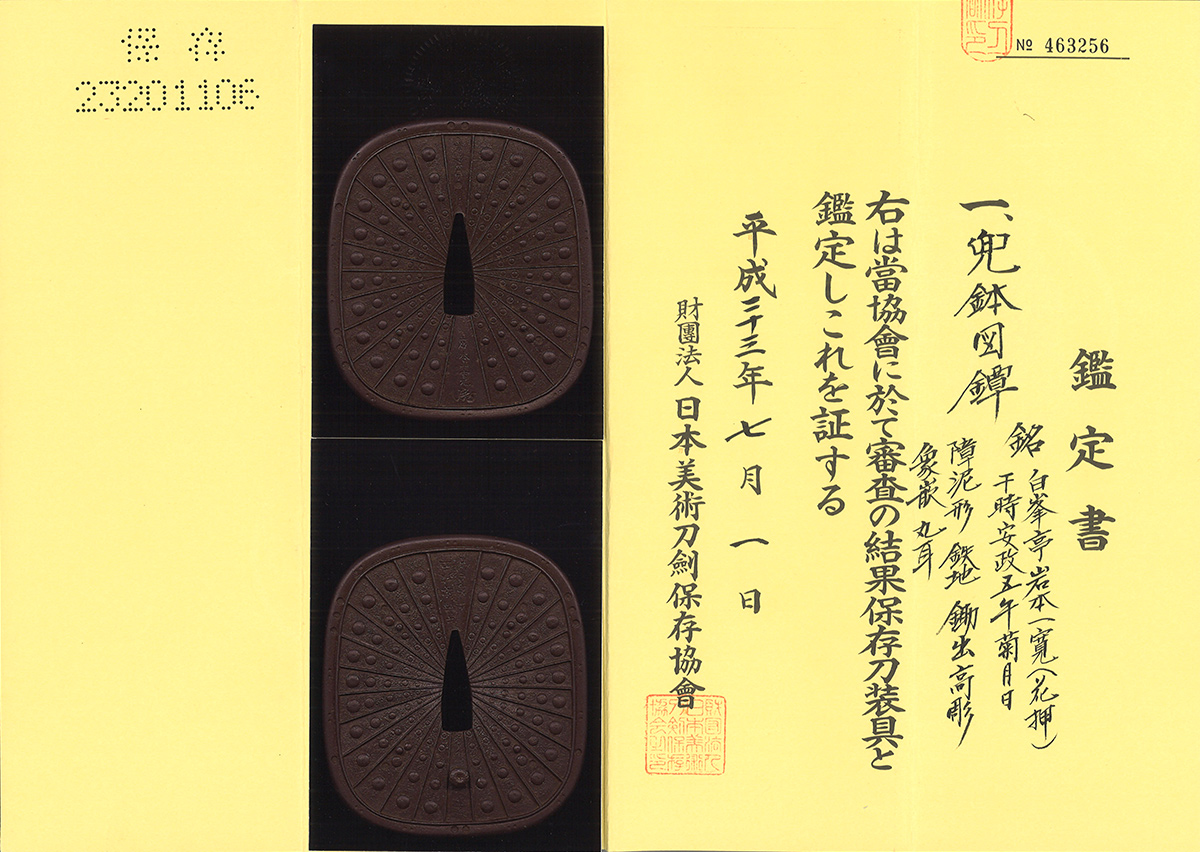 保存
23201106
№ 463256
鑑定書
一、兜鉢図鐔
銘 白峯亭岩本一寛(花押)
干時安政五午菊月日
障泥形 鉄地 鋤出高彫
象嵌 丸耳
右は當協會に於て審査の結果保存刀装具と
鑑定しこれを証する
平成二十三年七月一日
財團法人日本美術刀劍保存協會